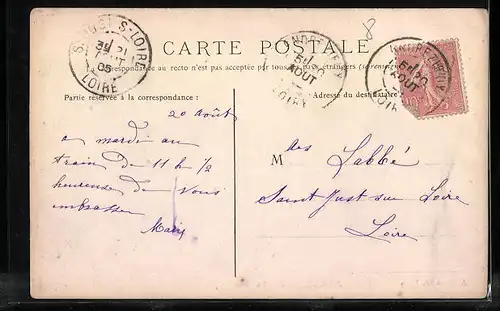 8
CARTE POSTALE
La correspondance au recto n'est pas acceptée par tous pays étrangers
Partie réservée à la correspondance:
Adresse du destinataire
ST JUST S-LOIRE
21
AOUT
05
LOIRE
5E/20
AOUT
LOIRE
5E/20
AOUT
LOIRE
20 Août
a mardi au
train de 11 h ½
heureuse de vous
embrasser
Mary
M des Labbé
Saint Just sur Loire
Loire